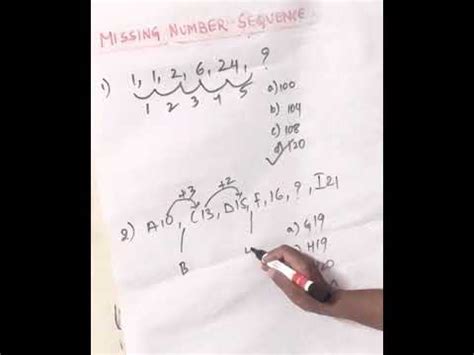 MISSING NUMBER SEQUENCE
1) 1, 1, 2, 6, 24, ?
1 2 3 4 5
a) 100
b) 104
c) 108
d) 120
+3 +2
2) A10, C13, D15, F, 16, ?, I21
B
a) G19
H19